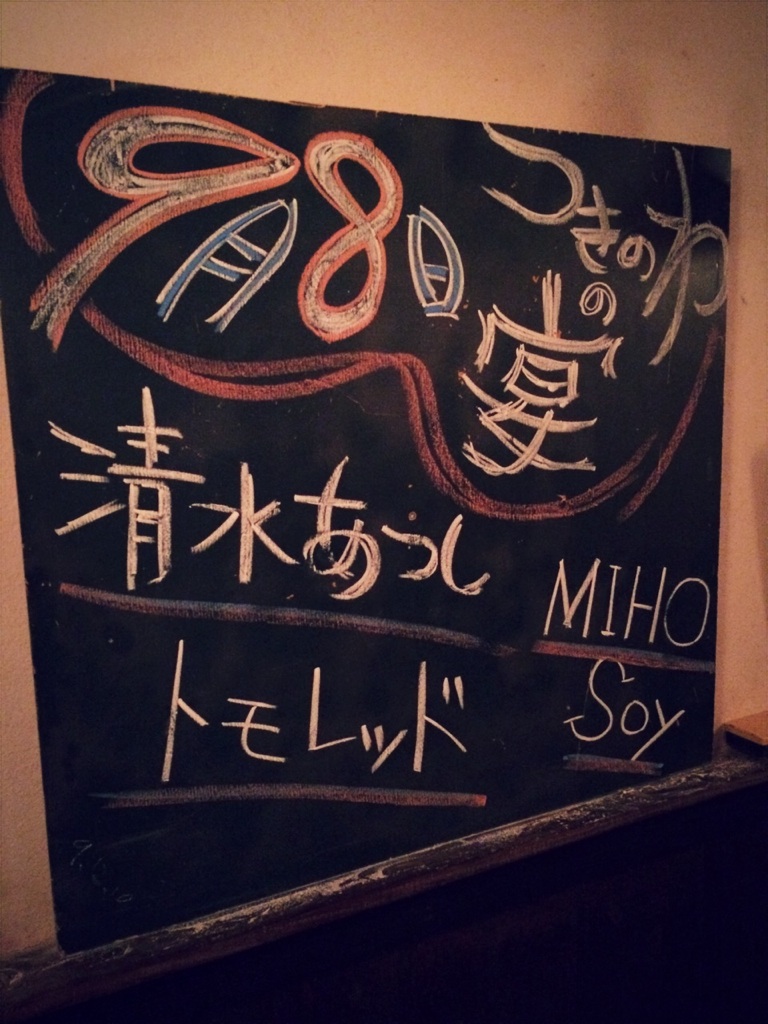 9月8日
つきのわ
の
宴
清水あつし
トモレッド
MIHO
Soy